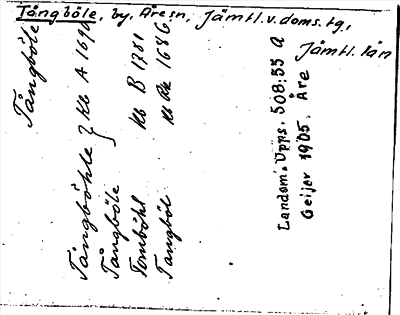 Tångböle, by, Åre sn, Jämtl. v. doms. tg,
Jämtl. län
Tångböle
Tångböhle } Kb A 169
Tångböle
Tomböhl Kb B 1781
Tangböl Kb Rä 1686
Landsm. Upps. 508:55 a
Geijer 1905. Åre